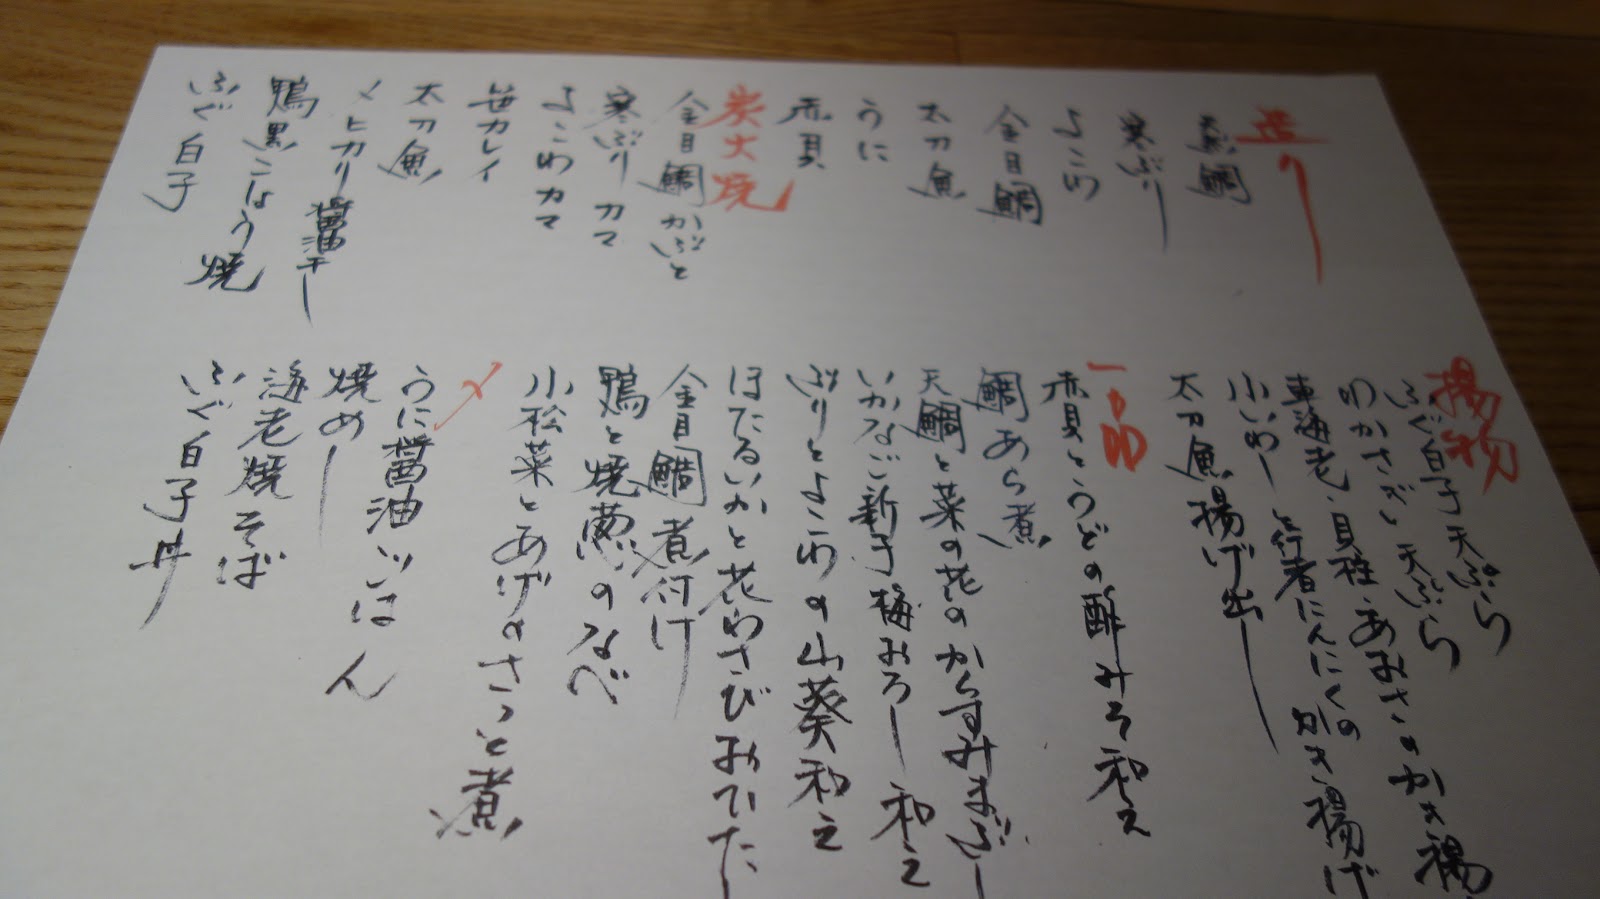 造り
真鯛
寒ぶり
よこわ
金目鯛
太刀魚
うに
赤貝
炭火焼
金目鯛かぶと
寒ぶりカマ
よこわカマ
笹カレイ
太刀魚
メヒカリ醤油干し
鴨黒こしょう焼
ふぐ白子
揚物
ふぐ白子天ぷら
わかさぎ天ぷら
車海老・貝柱・あおさのかき揚
小いわしと行者にんにくのかき揚げ
太刀魚揚げ出し
一品
赤貝とうどの酢みそ和え
鯛あら煮
天鯛と菜の花のからすみまぶし
いかなご新子梅おろし和え
ぶりとよこわの山葵和え
ほたるいかと花わさびおひたし
金目鯛煮付け
鴨と焼葱のなべ
小松菜とあげのさっと煮
〆
うに醤油ごはん
焼めし
海老焼そば
ふぐ白子丼